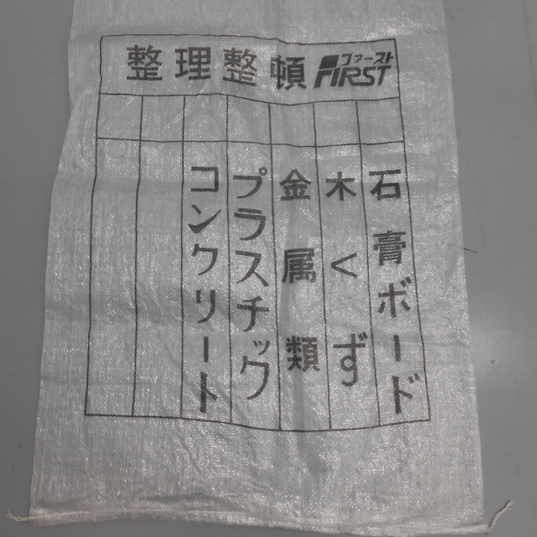 整理整頓
ファースト
FIRST
石膏ボード
木くず
金属類
プラスチック
コンクリート